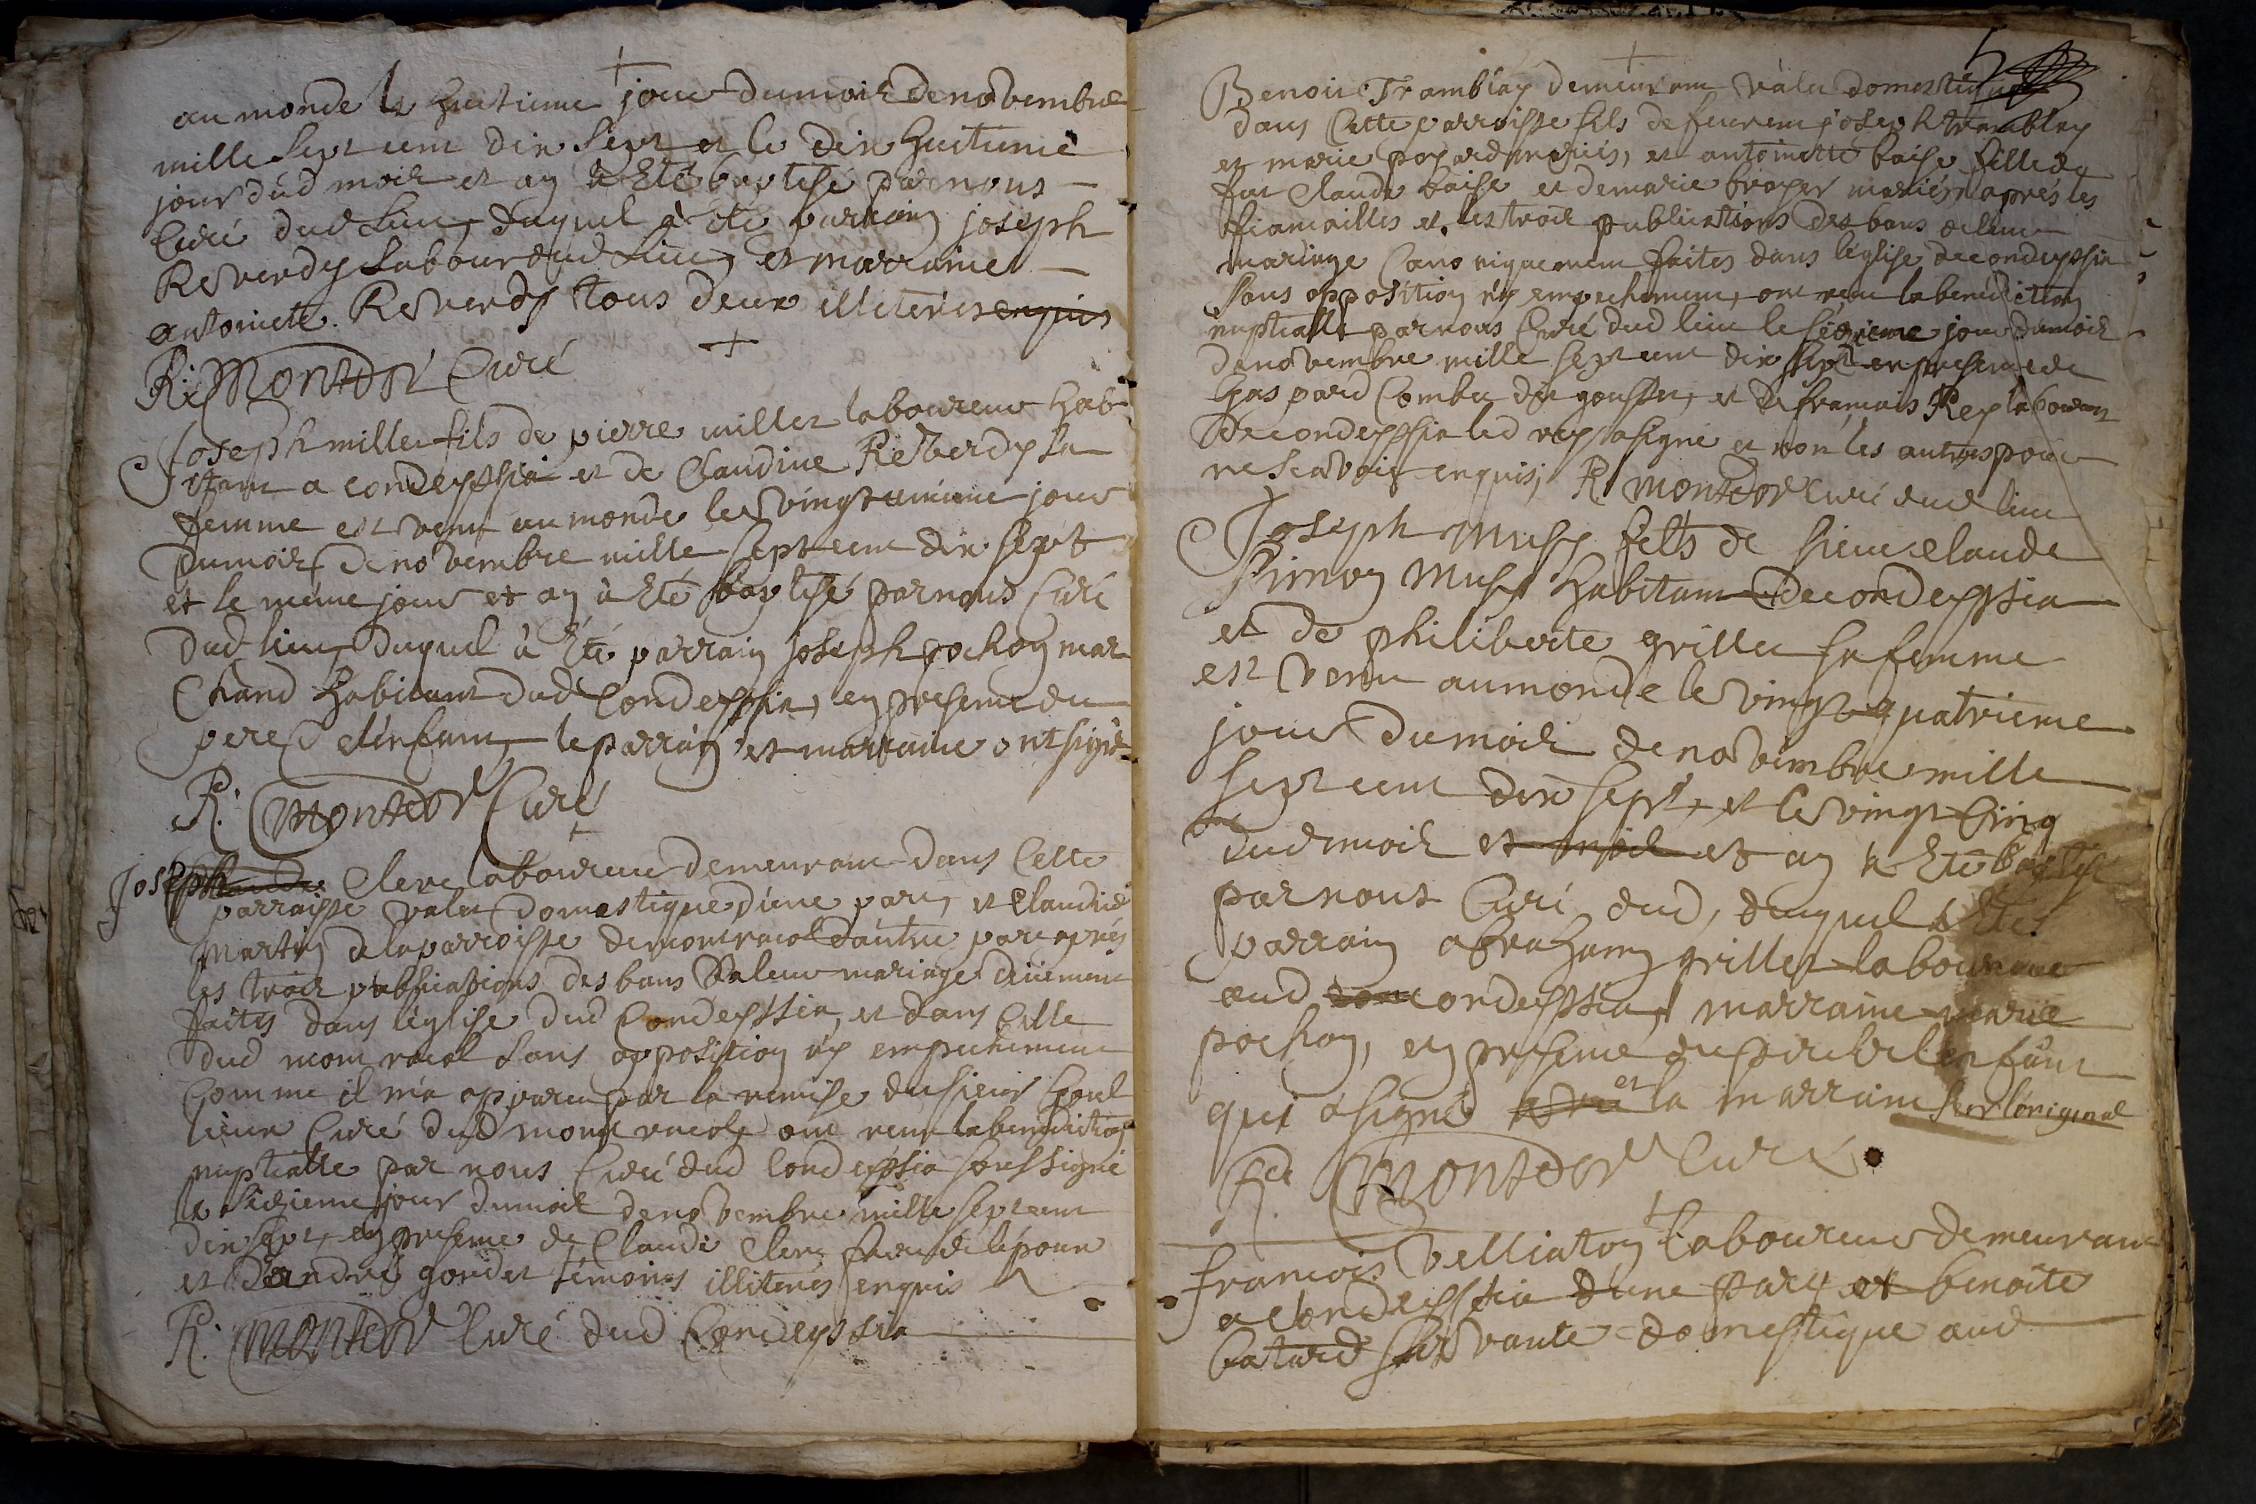 au monde le huitieme jour du mois de novembre
mille sept cent dix sept et le dix huitieme
jour dud mois et an à été baptisé par nous
Curé dud lieu, duquel à été parrain joseph
Reverdy laboureur dud lieu, et marraine
antoinete Reverdy tous deux illiterés enquis
R: Montdor Curé
Joseph millet fils de pierre millet laboureur hab
itant a condeyssia et de Claudine Reverdy sa
femme est venu au monde le vingt unieme jour
du mois de novembre mille sept cent dix sept
et le même jour et an à été baptisé par nous Curé
dud lieu, duquel à été parrain joseph pochon mar
chand habitant dud Condeyssia, en presence du
pere de l'enfant, le parrain et marraine ont signé
R: Montdor Curé
Joseph Clerc laboureur demeurant dans Cette
parroisse valet domestique d'une part, et Claudine
Martin de la parroisse de montracol d'autre part après
les trois publications des bans de leur mariage düement
faites dans l'église dud Condeyssia, et dans Celle
dud montracol sans opposition ny empechement
Comme il m'a apparu par la remise du sieur
Curé dud montracol, ont receu la benediction
nuptialle par nous Curé dud Condeyssia soussigné
le seizieme jour du mois de novembre mille sept cent
dix sept, en presence de Claude Clerc frere de l'époux
et d'andré gondet témoins illiterés enquis
R: Montdor Curé dud Condeyssia
5
Benoit Tramblay demeurant valet domestique
dans Cette parroisse fils de feu joseph tramblay
et marie poyard mariés, et antoinette baise fille de
feu Claude baise et de marie broyer mariés, après les
fiancailles et les trois publications des bans de leur
mariage Canoniquement faites dans l'église de condeyssia
sans opposition ny empechement, ont receu la benediction
nuptialle par nous Curé dud lieu le seizieme jour du mois
de novembre mille sept cent dix sept en presence de
Gaspard Combet et de francois Rey laboureur
de condeyssia led rey a signé et non les autres pour
ne scavoir enquis, R. Montdor Curé dud lieu
Joseph Musy fils de sieur claude
Simon Musy habitant de condeyssia
et de philiberte grillet sa femme
est venu au monde le vingt quatrieme
jour du mois de novembre mille
sept cent dix sept, et le vingt Cinq
dud mois et mois et an à été baptisé
par nous Curé dud, duquel à été
parrain abraham grillet laboureur
aud condeyssia, marraine marie
pochon, en presence du pere de l'enfant
qui a signé et la marraine sur l'original
R. Montdor Curé
francois Velliaton laboureur demeurant
a Condeyssia d'une part et benoite
baturd servante domestique aud